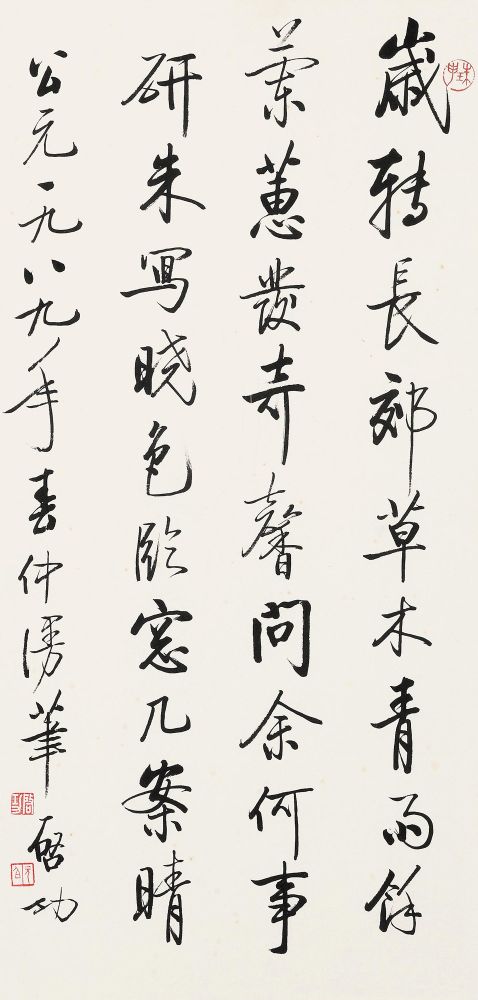 歲转長郊草木青雨餘
蘭蕙發奇馨問余何事
研朱寫晓色臨窓几案晴
公元一九八九年春仲漫筆 啓功